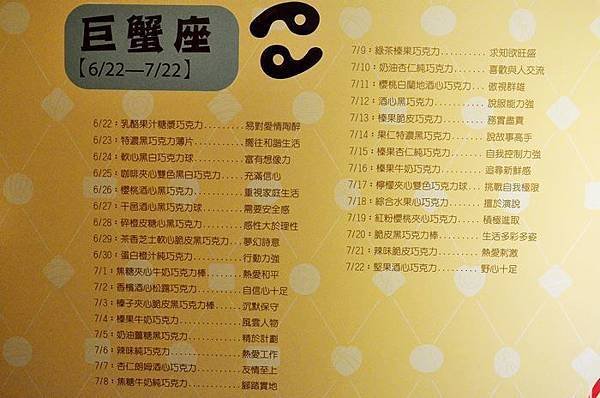 巨蟹座
【6/22—7/22】
6/22：乳酪果汁糖漿巧克力........易對愛情陶醉
6/23：特濃黑巧克力薄片..........嚮往和諧生活
6/24：軟心黑白巧克力球..........富有想像力
6/25：咖啡夾心雙色黑白巧克力....充滿信心
6/26：櫻桃酒心黑巧克力..........重視家庭生活
6/27：干邑酒心黑巧克力球........需要安全感
6/28：碎橙皮糖心黑巧克力........感性大於理性
6/29：茶香芝士軟心脆皮黑巧克力..夢幻詩意
6/30：蛋白橙汁純巧克力..........行動力強
7/1：焦糖夾心牛奶巧克力棒.......熱愛和平
7/2：香檳酒心松露巧克力.........自信心十足
7/3：榛子夾心脆皮黑巧克力棒.....沉默保守
7/4：榛果牛奶巧克力.............風雲人物
7/5：奶油薑糖黑巧克力...........精於計劃
7/6：辣味純巧克力...............熱愛工作
7/7：杏仁朗姆酒心巧克力.........友情至上
7/8：焦糖牛奶純巧克力...........腳踏實地
7/9：綠茶榛果巧克力..........求知欲旺盛
7/10：奶油杏仁純巧克力.......喜歡與人交流
7/11：櫻桃白蘭地酒心巧克力...傲視群雄
7/12：酒心黑巧克力...........說服能力強
7/13：榛果脆皮巧克力.........務實盡責
7/14：果仁特濃黑巧克力.......說故事高手
7/15：榛果杏仁純巧克力.......自我控制力強
7/16：榛果牛奶巧克力.........追尋新鮮感
7/17：檸檬夾心雙色巧克力球...挑戰自我極限
7/18：綜合水果心巧克力.......擅於演說
7/19：紅粉櫻桃夾心巧克力.....積極進取
7/20：脆皮黑巧克力棒.........生活多彩多姿
7/21：辣味脆皮巧克力.........熱愛刺激
7/22：堅果酒心巧克力.........野心十足